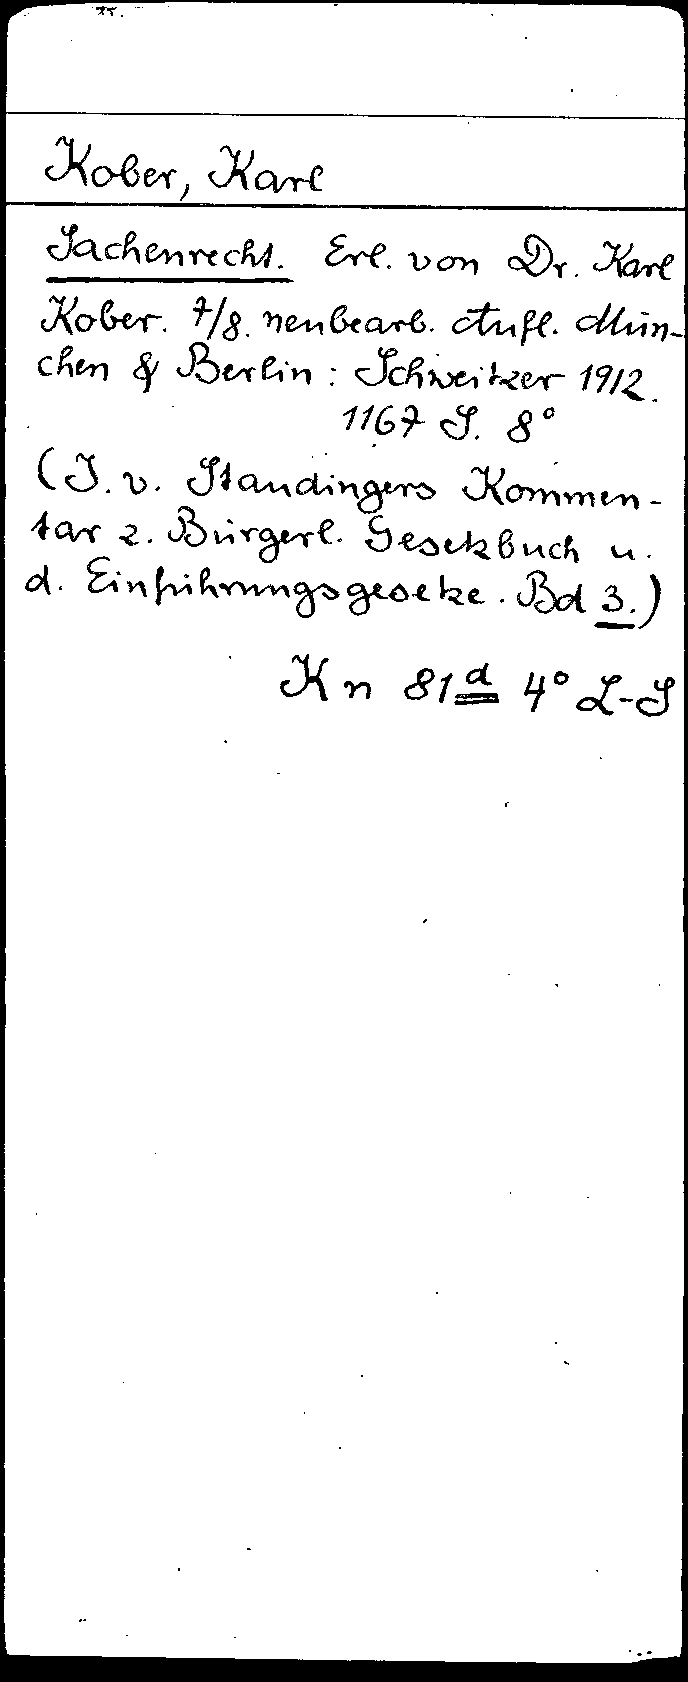 Kober, Karl
Sachenrecht. Erl. von Dr. Karl
Kober. 7/8. neubearb. Aufl. Mün-
chen & Berlin: Schweitzer 1912.
1167 S. 8°
(J. v. Staudingers Kommen-
tar z. Bürgerl. Gesetzbuch u.
d. Einführungsgesetze. Bd 3.)
Kn 81d 4° L-S